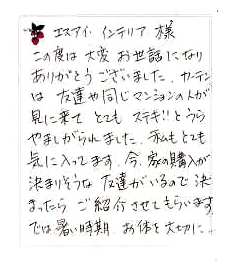 エスアイ.インテリア 様
この度は大変お世話になり
ありがとうございました。カーテン
は 友達や同じマンションの人が
見に来て とても ステキ!!とうら
やましがられました。私もとても
気に入ってます。今、家の購入が
決まりそうな友達がいるので決
まったら ご紹介させてもらいます。
では暑い時期、お体を大切に。